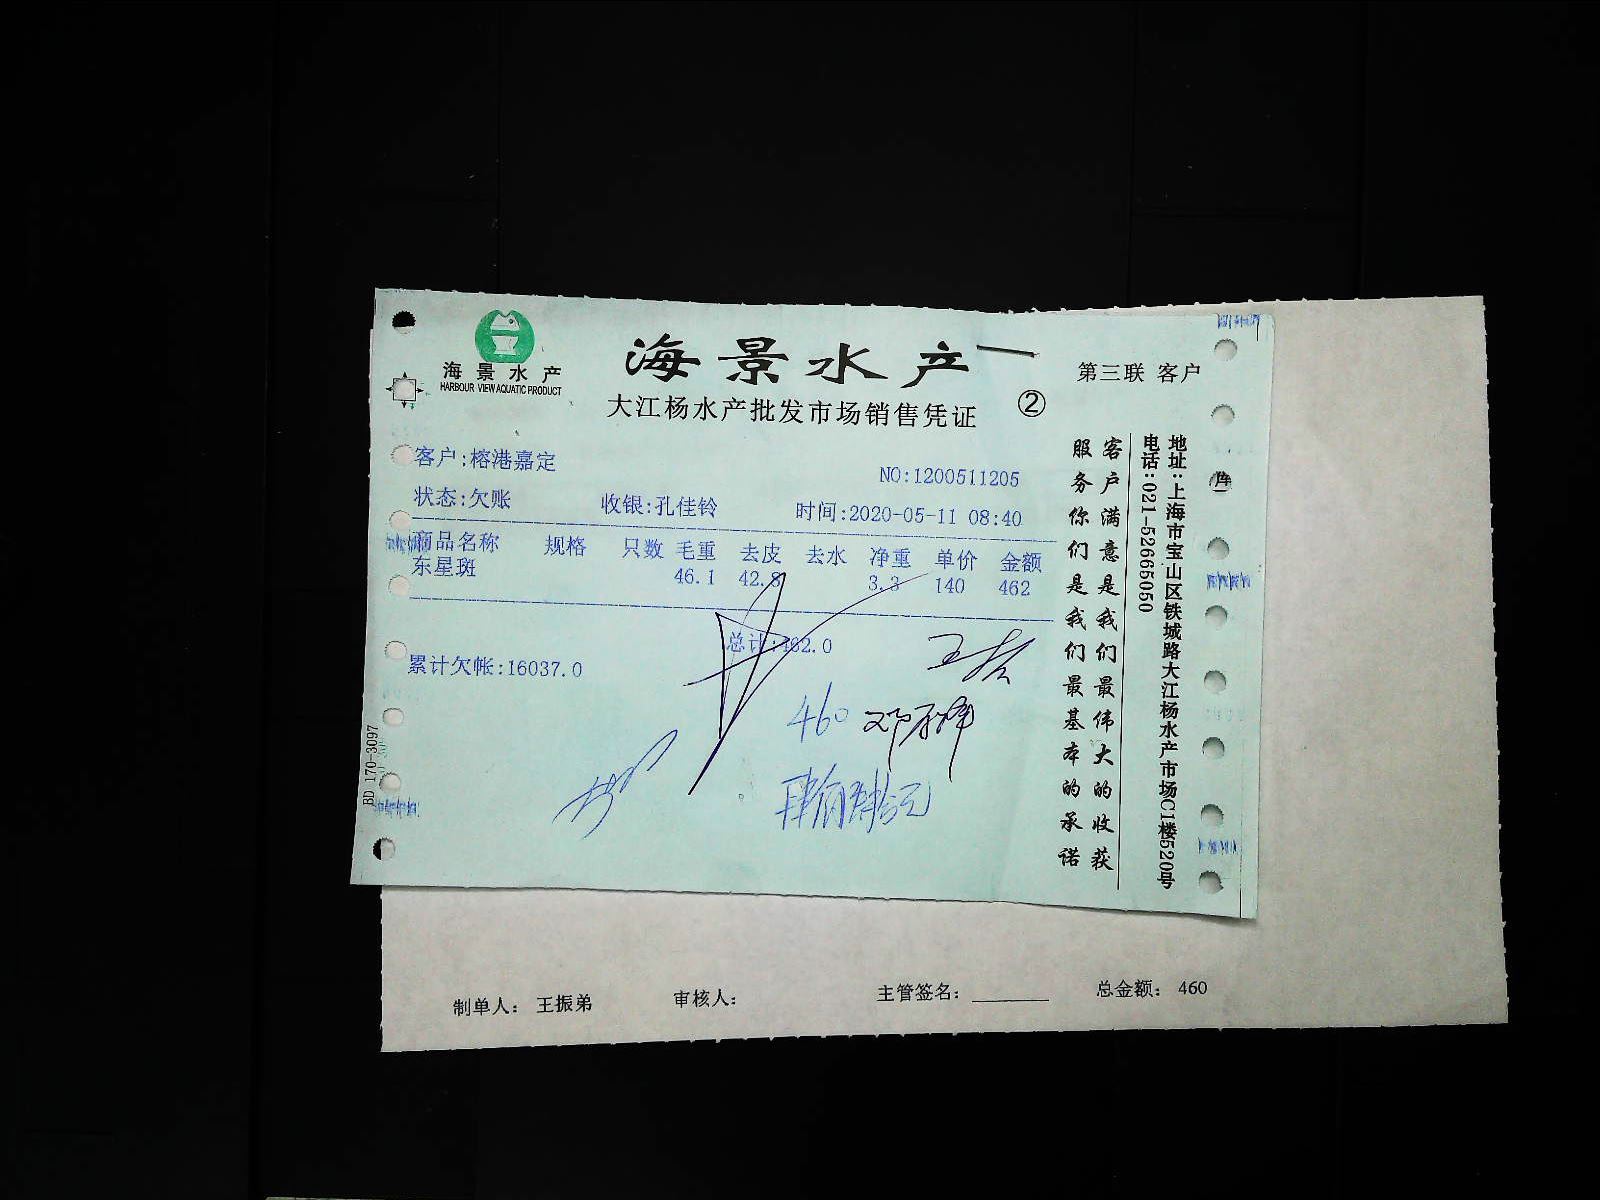 海景水产
HARBOUR VIEW AQUATIC PRODUCT
海景水产
大江杨水产批发市场销售凭证
②
第三联 客户
客户:榕港嘉定
NO:1200511205
状态:欠账 收银:孔佳铃 时间:2020-05-11 08:40
商品名称 规格 只数 毛重 去皮 去水 净重 单价 金额
东星斑 46.1 42.8 3.3 140 462
总计:462.0
累计欠帐:16037.0
460
客户满意是我们最伟大的收获
服务你们是我们最基本的承诺
地址:上海市宝山区铁城路大江杨水产市场C1楼520号
电话:021-52665050
BD 170-3097
制单人: 王振弟 审核人: 主管签名: 总金额: 460